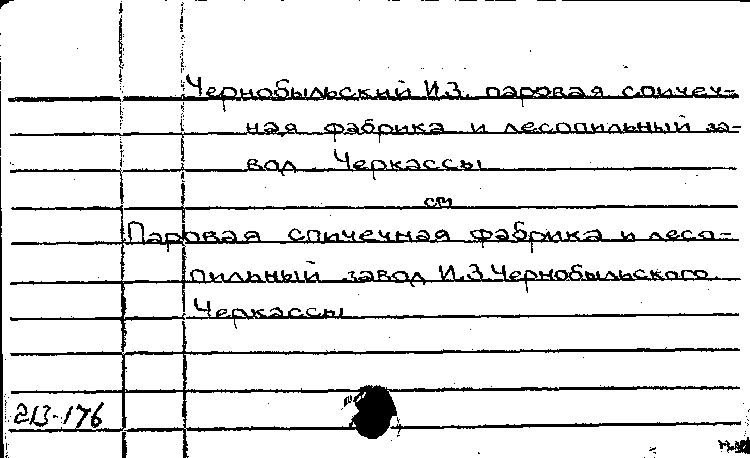 Чернобыльский И.З. паровая спичеч-
ная фабрика и лесопильный за-
вод. Черкассы
см
Паровая спичечная фабрика и лесо-
пильный завод И.З.Чернобыльского.
Черкассы
213-176